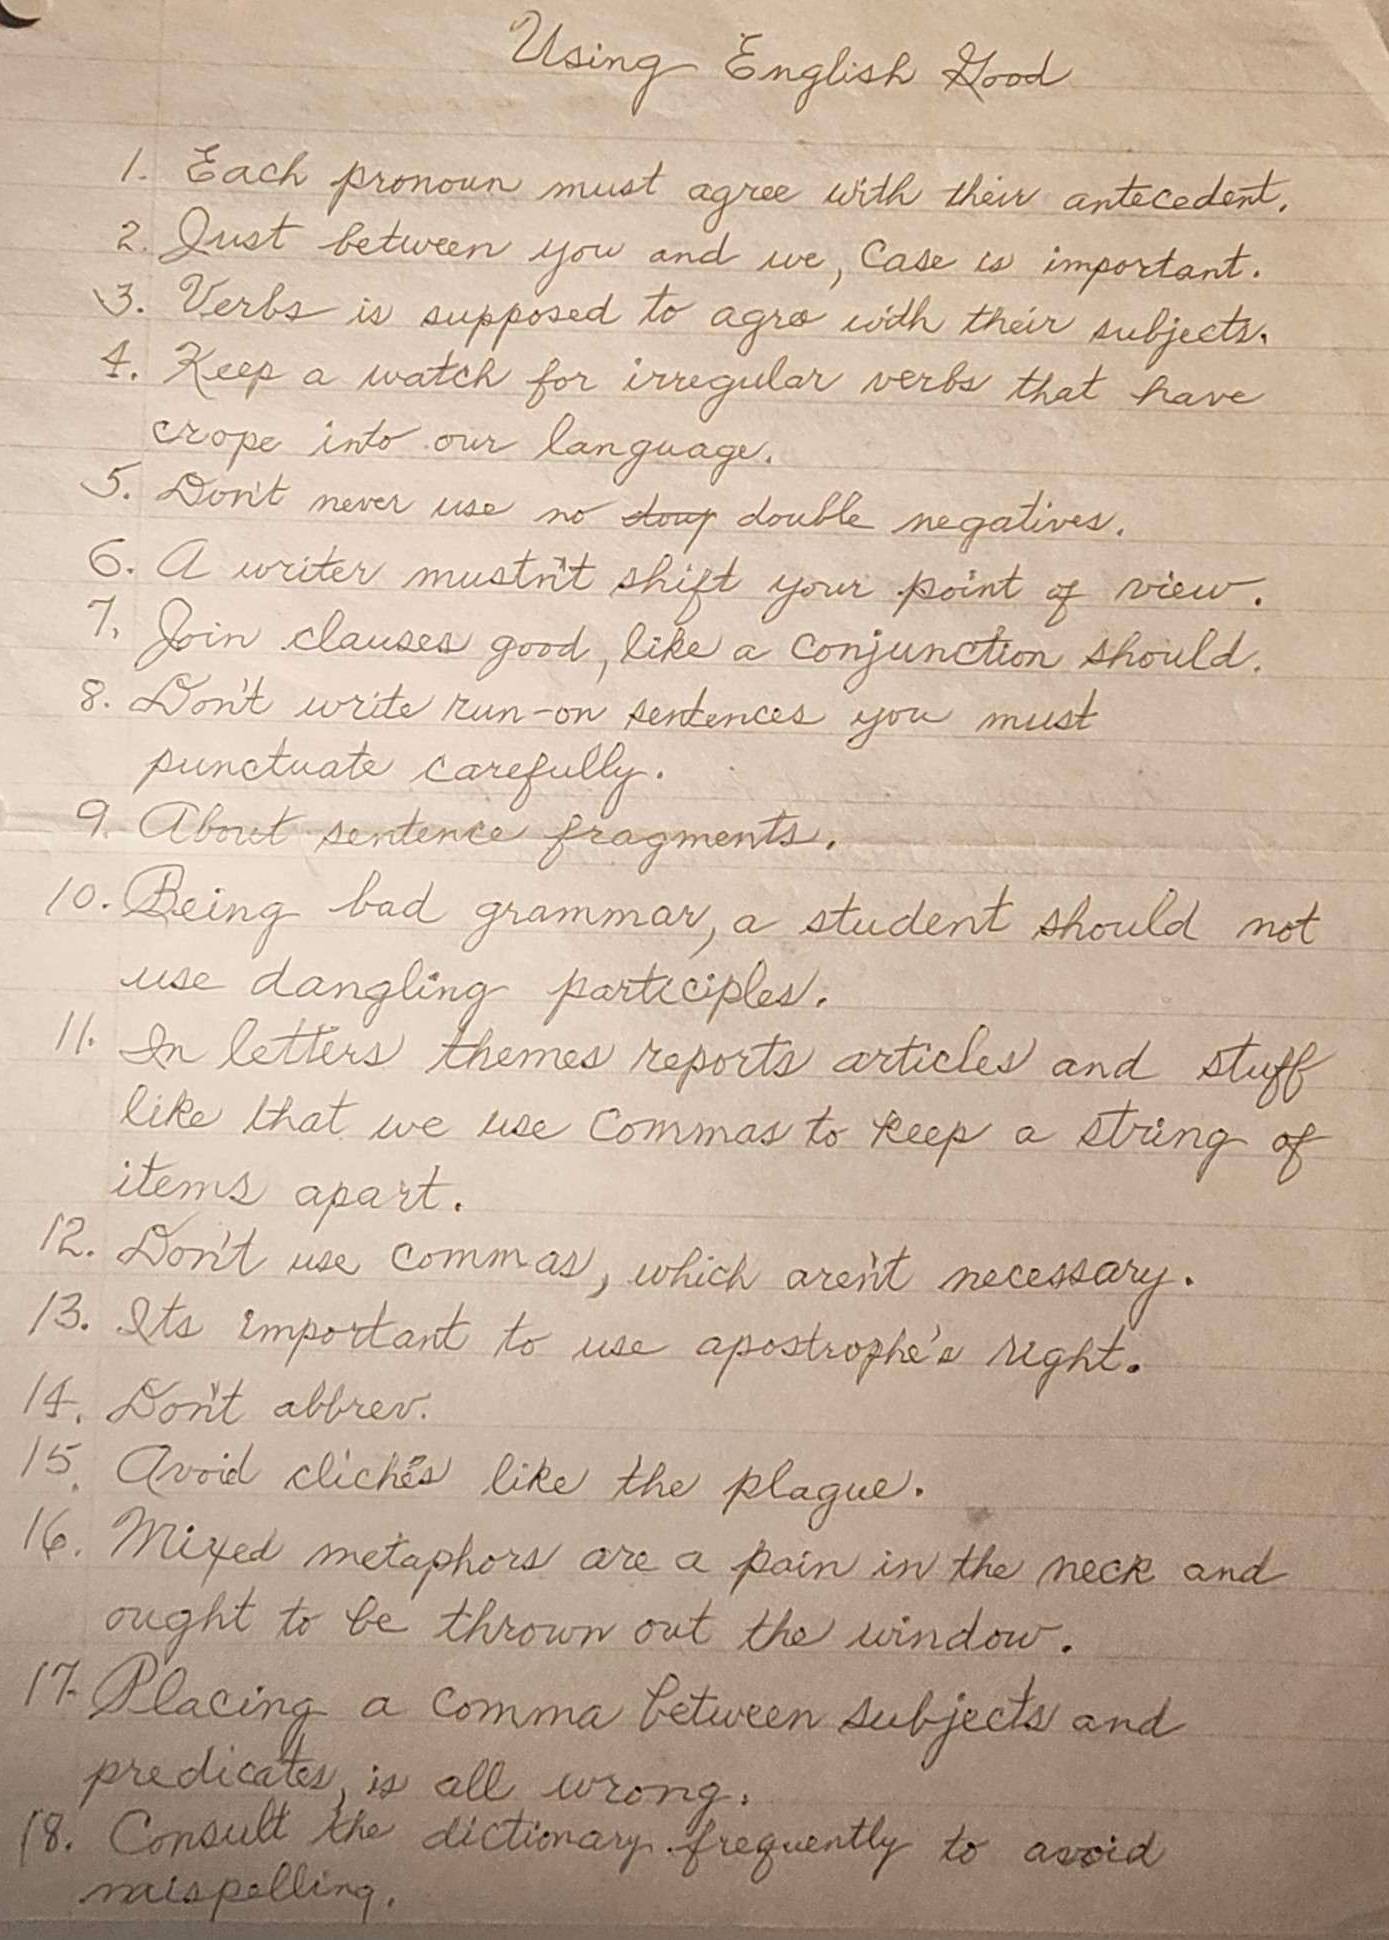 Using English Good
1. Each pronoun must agree with their antecedent.
2. Just between you and we, Case is important.
3. Verbs is supposed to agree with their subjects.
4. Keep a watch for irregular verbs that have
crope into our language.
5. Don't never use no double negatives.
6. A writer mustn't shift your point of view.
7. Join clauses good, like a conjunction should.
8. Don't write run-on sentences you must
punctuate carefully.
9. About sentence fragments.
10. Being bad grammar, a student should not
use dangling participles.
11. In letters themes reports articles and stuff
like that we use commas to keep a string of
items apart.
12. Don't use commas, which aren't necessary.
13. Its important to use apostrophe's right.
14. Don't abbrev.
15. Avoid clichés like the plague.
16. Mixed metaphors are a pain in the neck and
ought to be thrown out the window.
17. Placing a comma between subjects and
predicates, is all wrong.
18. Consult the dictionary frequently to avoid
mispelling.